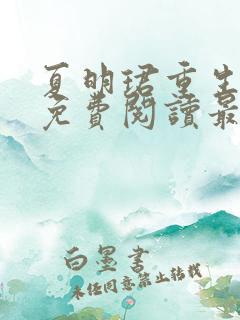 夏明珺重生
免費閱讀最
白墨書
未經同意禁止轉載